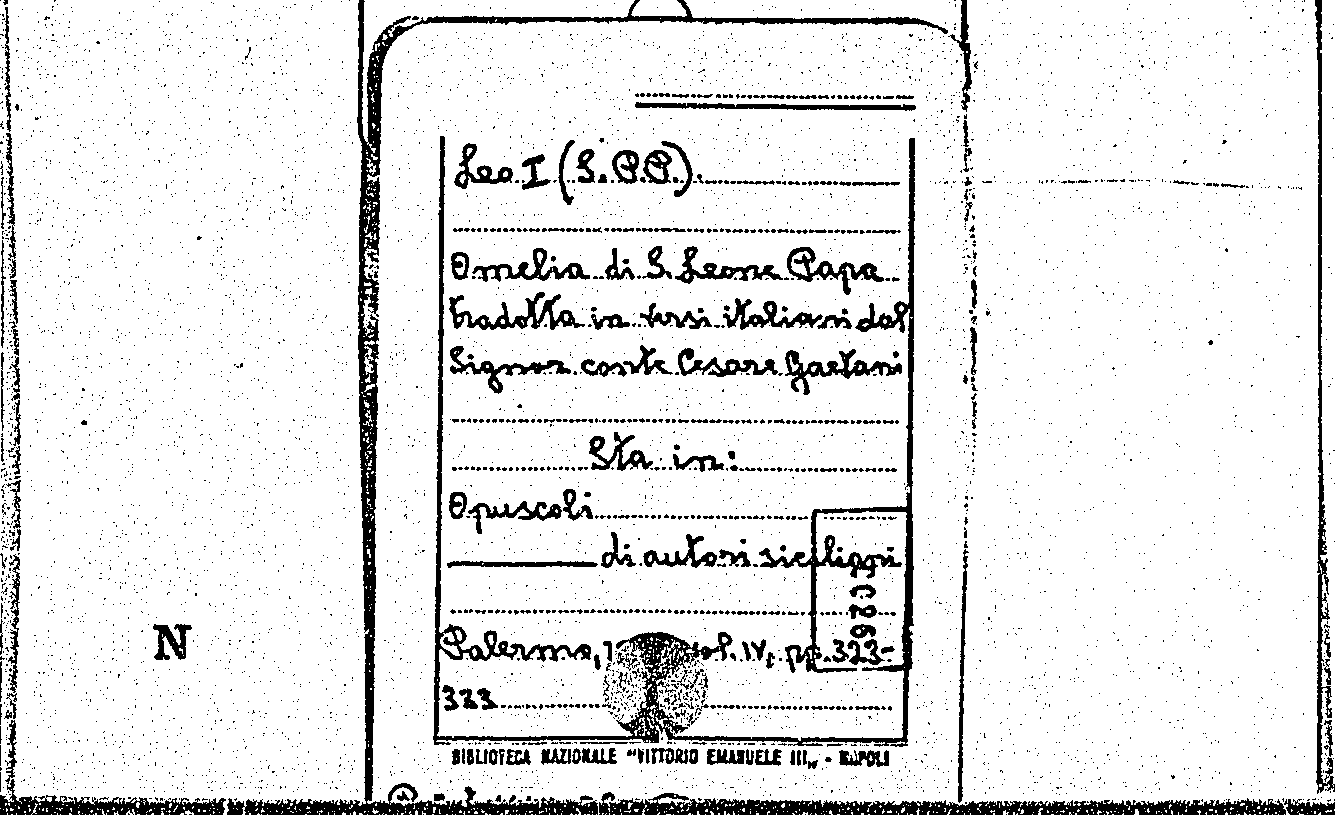 Leo I (S. P.P.).
Omelia di S. Leone Papa
tradotta in versi italiani dal
Signor conte Cesare Gaetani
Sta in:
Opuscoli
di autori siciliani
Palermo, vol. IV, pp. 323-
333
N
BIBLIOTECA NAZIONALE "VITTORIO EMANUELE III„ - NAPOLI